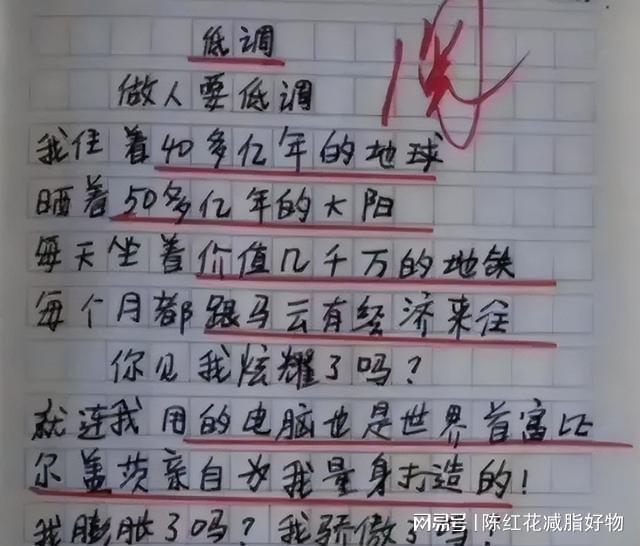 低调
阅
做人要低调
我住着40多亿年的地球
晒着50多亿年的太阳
每天坐着价值几千万的地铁
每个月都跟马云有经济来往
你见我炫耀了吗?
就连我用的电脑也是世界首富比
尔盖茨亲自为我量身打造的!
我膨胀了吗?我骄傲了吗!
搜狐号|陈红花减脂好物